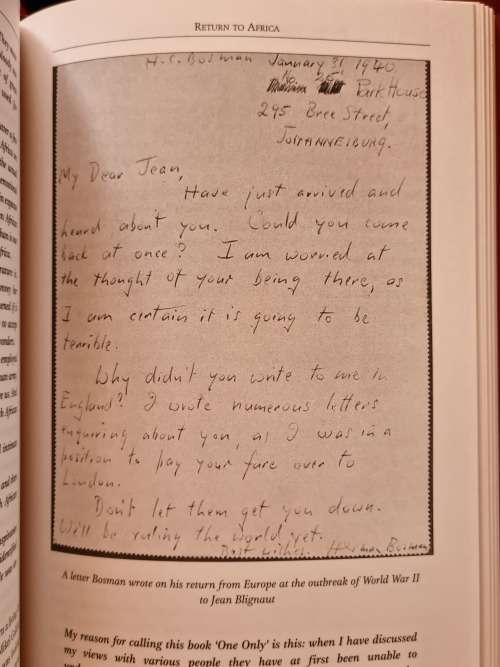 RETURN TO AFRICA
H. C. Bosman January 31, 1940.
No. 25, Park House
295 Bree Street,
JOHANNESBURG.
My Dear Jean,
Have just arrived and
heard about you. Could you come
back at once? I am worried at
the thought of your being there, as
I am certain it is going to be
terrible.
Why didn't you write to me in
England? I wrote numerous letters
enquiring about you, as I was in a
position to pay your fare over to
London.
Don't let them get you down.
We'll be ruling the world yet.
Best wishes. Herman Bosman
A letter Bosman wrote on his return from Europe at the outbreak of World War II
to Jean Blignaut
My reason for calling this book ‘One Only’ is this: when I have discussed
my views with various people they have at first been unable to